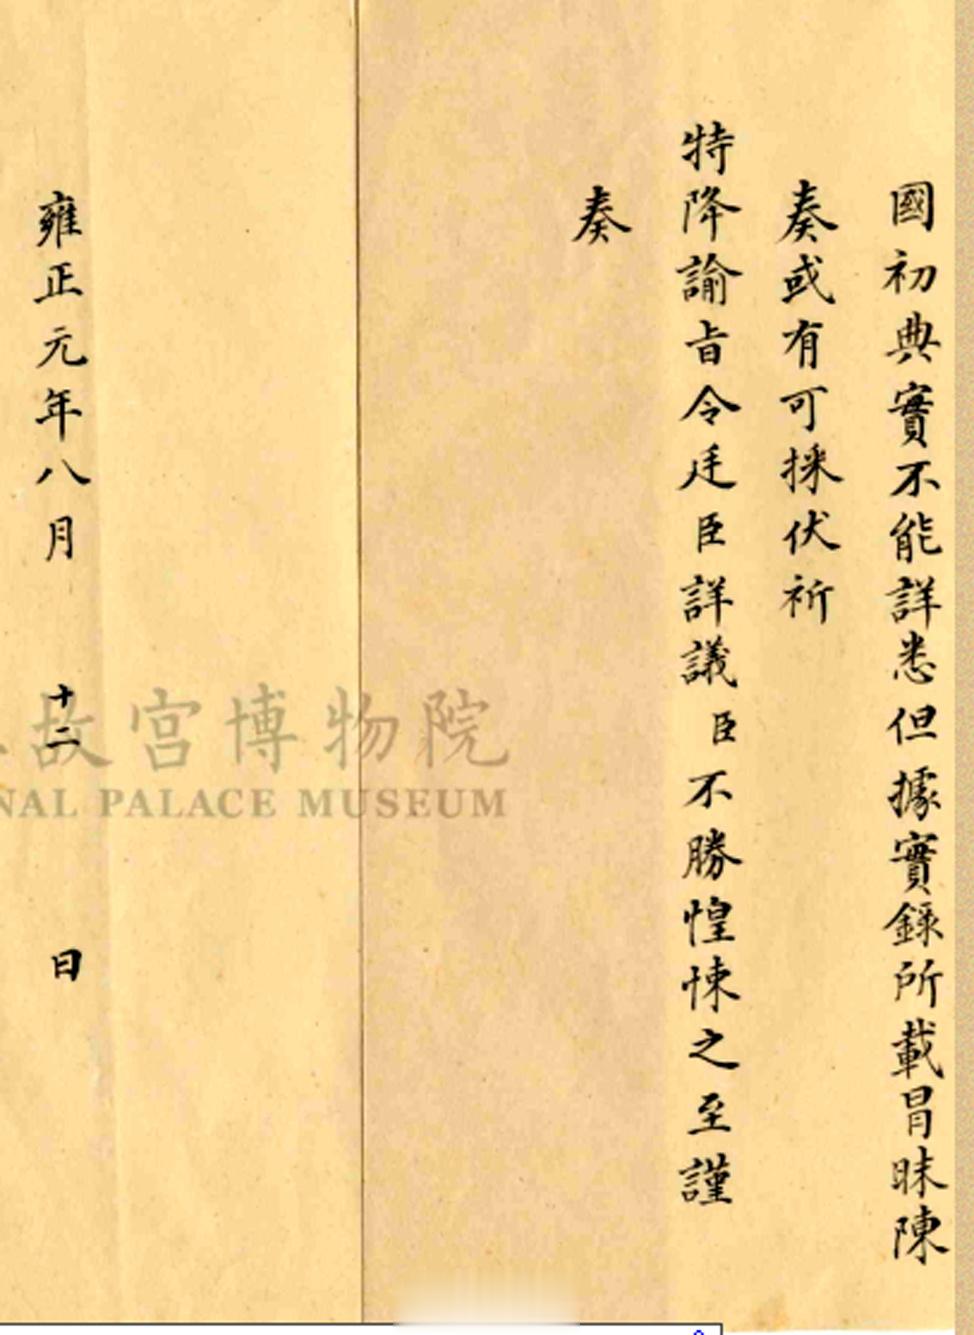 國初典實不能詳悉但據實錄所載冒昧陳
奏或有可採伏祈
特降諭旨令廷臣詳議臣不勝惶悚之至謹
奏
雍正元年八月 十二 日
故宮博物院
NAL PALACE MUSEUM